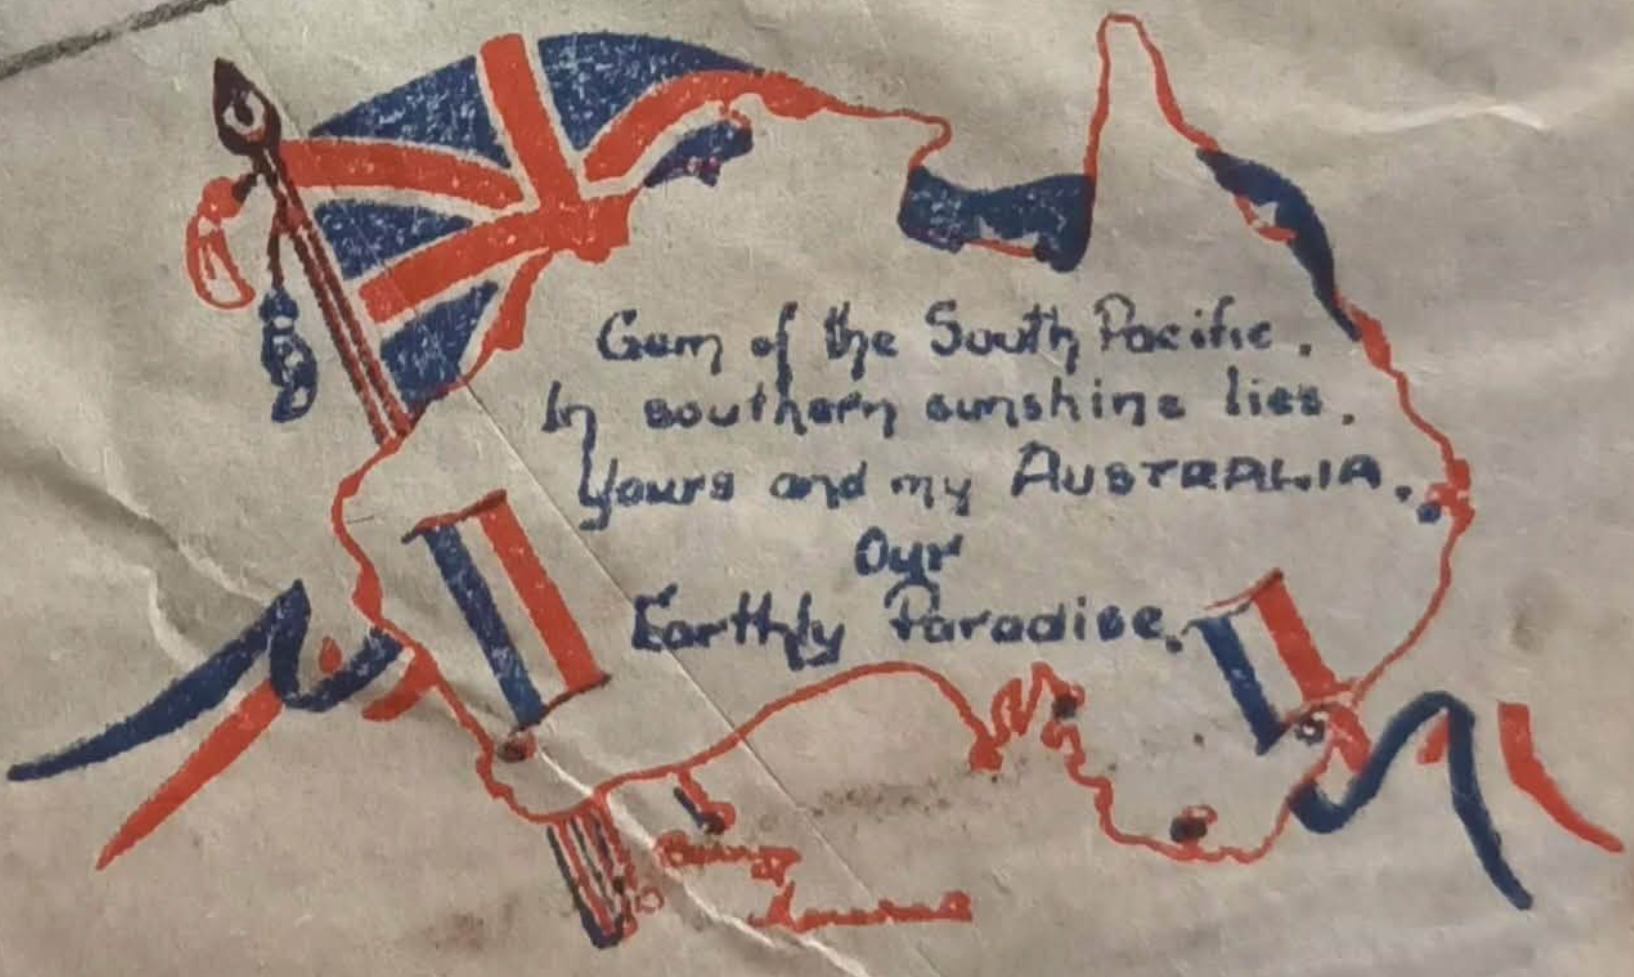 Gem of the South Pacific.
In southern sunshine lies.
Yours and my AUSTRALIA.
Our
Earthly Paradise.